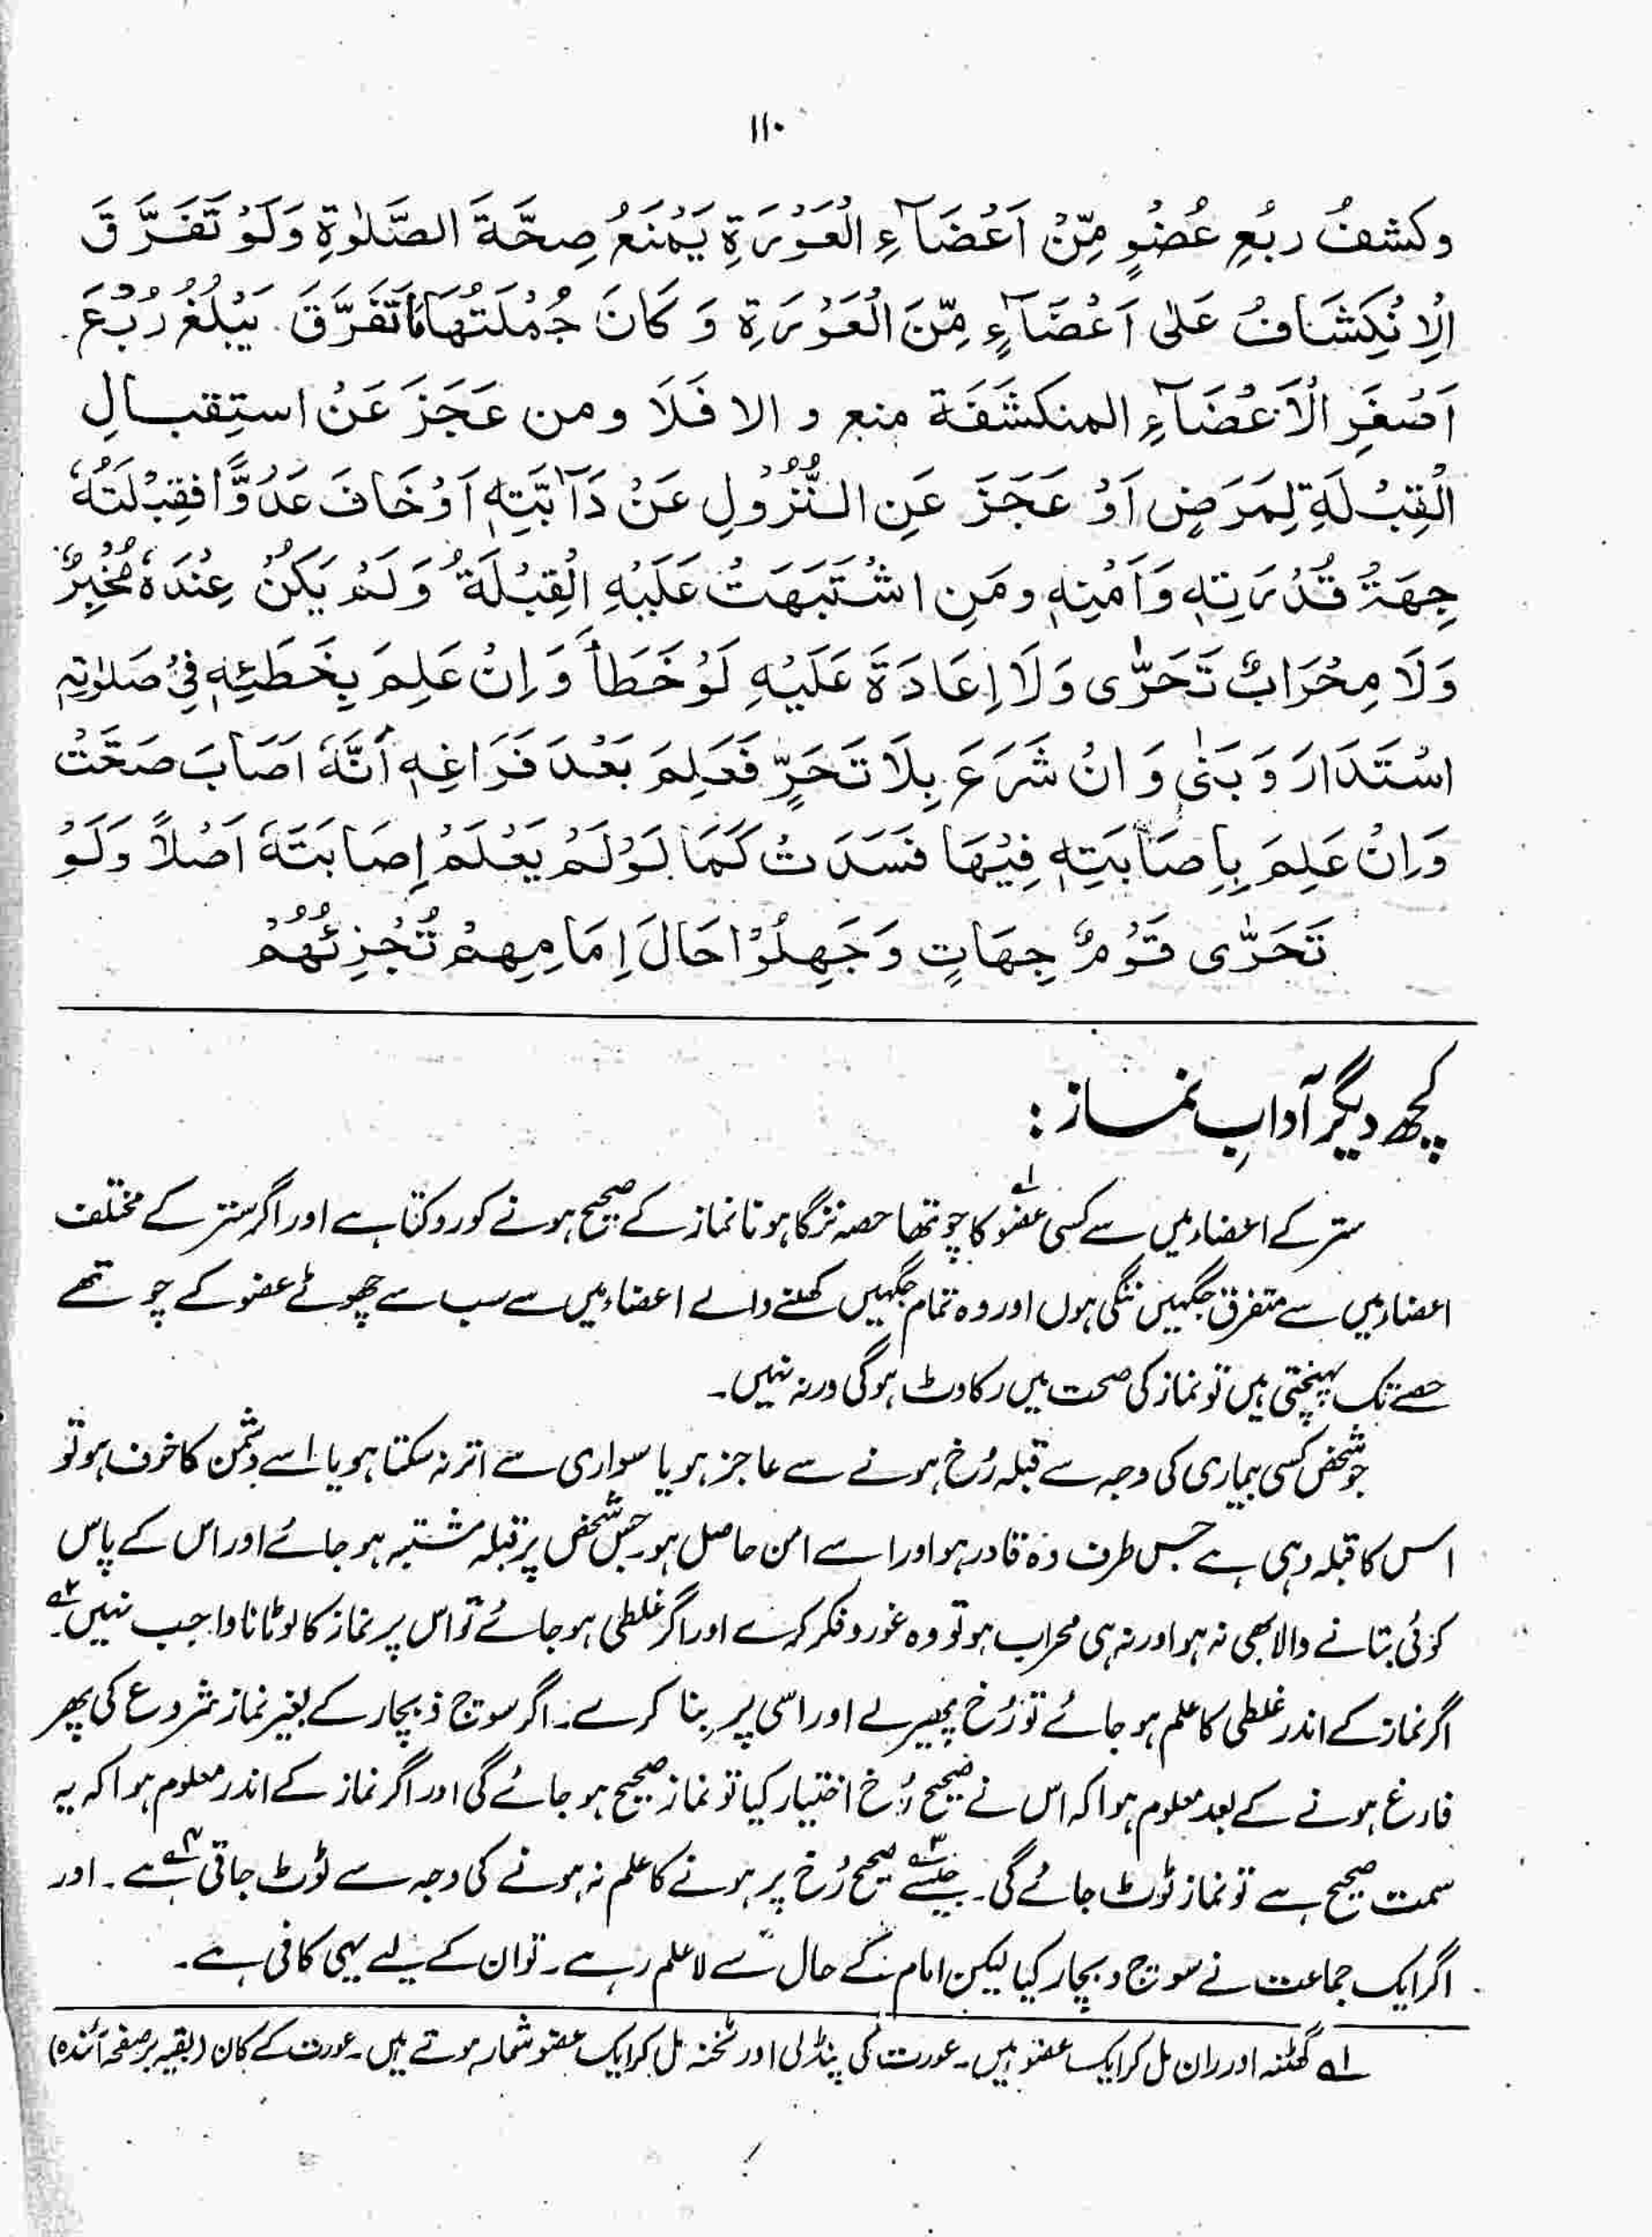 ۱۱۰
وكشفُ ربُعِ عُضُوٍ مِّنْ اَعْضَآءِ الْعَوْرَةِ يَمْنَعُ صِحَّةَ الصَّلٰوةِ وَلَوْ تَفَرَّقَ
الْاِنْكِشَافُ عَلٰى اَعْضَآءٍ مِّنَ الْعَوْرَةِ وَ كَانَ جُمْلَتُهَا مَا تَفَرَّقَ يَبْلُغُ رُبْعَ
اَصْغَرِ الْاَعْضَآءِ المنكشَفَة منع و الا فَلَا ومن عَجَزَ عَنْ استِقبالِ
الْقِبْلَةِ لِمَرَضٍ اَوْ عَجَزَ عَنِ النُّزُوْلِ عَنْ دَآبَّتِهٖ اَوْ خَافَ عَدُوًّا فقِبْلَتُهٗ
جِهَةُ قُدْرَتِهٖ وَاَمْنِهٖ ومَنِ اشْتَبَهَتْ عَلَيْهِ الْقِبْلَةُ وَلَمْ يَكُنْ عِنْدَهٗ مُخْبِرٌ
وَلَا مِحْرَابٌ تَحَرّٰى وَلَا اِعَادَةَ عَلَيْهِ لَوْ خَطَأَ وَاِنْ عَلِمَ بِخَطَئِهٖ فِيْ صَلٰوتِهٖ
اسْتَدَارَ وَ بَنٰى وَ انْ شَرَعَ بِلَا تَحَرٍّ فَعَلِمَ بَعْدَ فَرَاغِهٖ اَنَّهٗ اَصَابَ صَحَّتْ
وَاِنْ عَلِمَ بِاِصَابَتِهٖ فِيْهَا فَسَدَتْ كَمَا لَوْ لَمْ يَعْلَمْ اِصَابَتَهٗ اَصْلًا وَلَوْ
تَحَرّٰى قَوْمٌ جِهَاتٍ وَجَهِلُوْا حَالَ اِمَامِهِمْ تُجْزِئُهُمْ
کچھ دیگر آدابِ نماز :
ستر کے اعضاء میں سے کسی عضو۱ کا چوتھا حصہ ننگا ہونا نماز کے صحیح ہونے کو روکتا ہے اور اگر ستر کے مختلف
اعضاء میں سے متفرق جگہیں ننگی ہوں اور وہ تمام جگہیں کھلنے والے اعضاء میں سے سب سے چھوٹے عضو کے چوتھے
حصے تک پہنچتی ہیں تو نماز کی صحت میں رکاوٹ ہوگی ورنہ نہیں۔
جو شخص کسی بیماری کی وجہ سے قبلہ رُخ ہونے سے عاجز ہو یا سواری سے اتر نہ سکتا ہو یا اسے دشمن کا خوف ہو تو
اس کا قبلہ وہی ہے جس طرف وہ قادر ہو اور اسے امن حاصل ہو جس شخص پر قبلہ مشتبہ ہو جائے اور اس کے پاس
کوئی بتانے والا بھی نہ ہو اور نہ ہی محراب ہو تو وہ غور و فکر کرے اور اگر غلطی ہو جائے تو اس پر نماز کا لوٹانا واجب نہیں۲۔
اگر نماز کے اندر غلطی کا علم ہو جائے تو رُخ پھیر لے اور اسی پر بنا کرے۔ اگر سوچ و بچار کے بغیر نماز شروع کی پھر
فارغ ہونے کے بعد معلوم ہوا کہ اس نے صحیح رُخ اختیار کیا تو نماز صحیح ہو جائے گی اور اگر نماز کے اندر معلوم ہوا کہ یہ
سمت صحیح ہے تو نماز ٹوٹ جائے گی۔ جیسے۳ صحیح رُخ پر ہونے کا علم نہ ہونے کی وجہ سے ٹوٹ جاتی ہے۴۔ اور
اگر ایک جماعت نے سوچ و بچار کیا لیکن امام کے حال سے لاعلم رہے۔ تو ان کے لیے یہی کافی ہے۔
۱ گھٹنہ اور ران مل کر ایک عضو ہیں۔ عورت کی پنڈلی اور ٹخنہ مل کر ایک عضو شمار ہوتے ہیں۔ عورت کے کان (بقیہ بر صفحہ آئندہ)